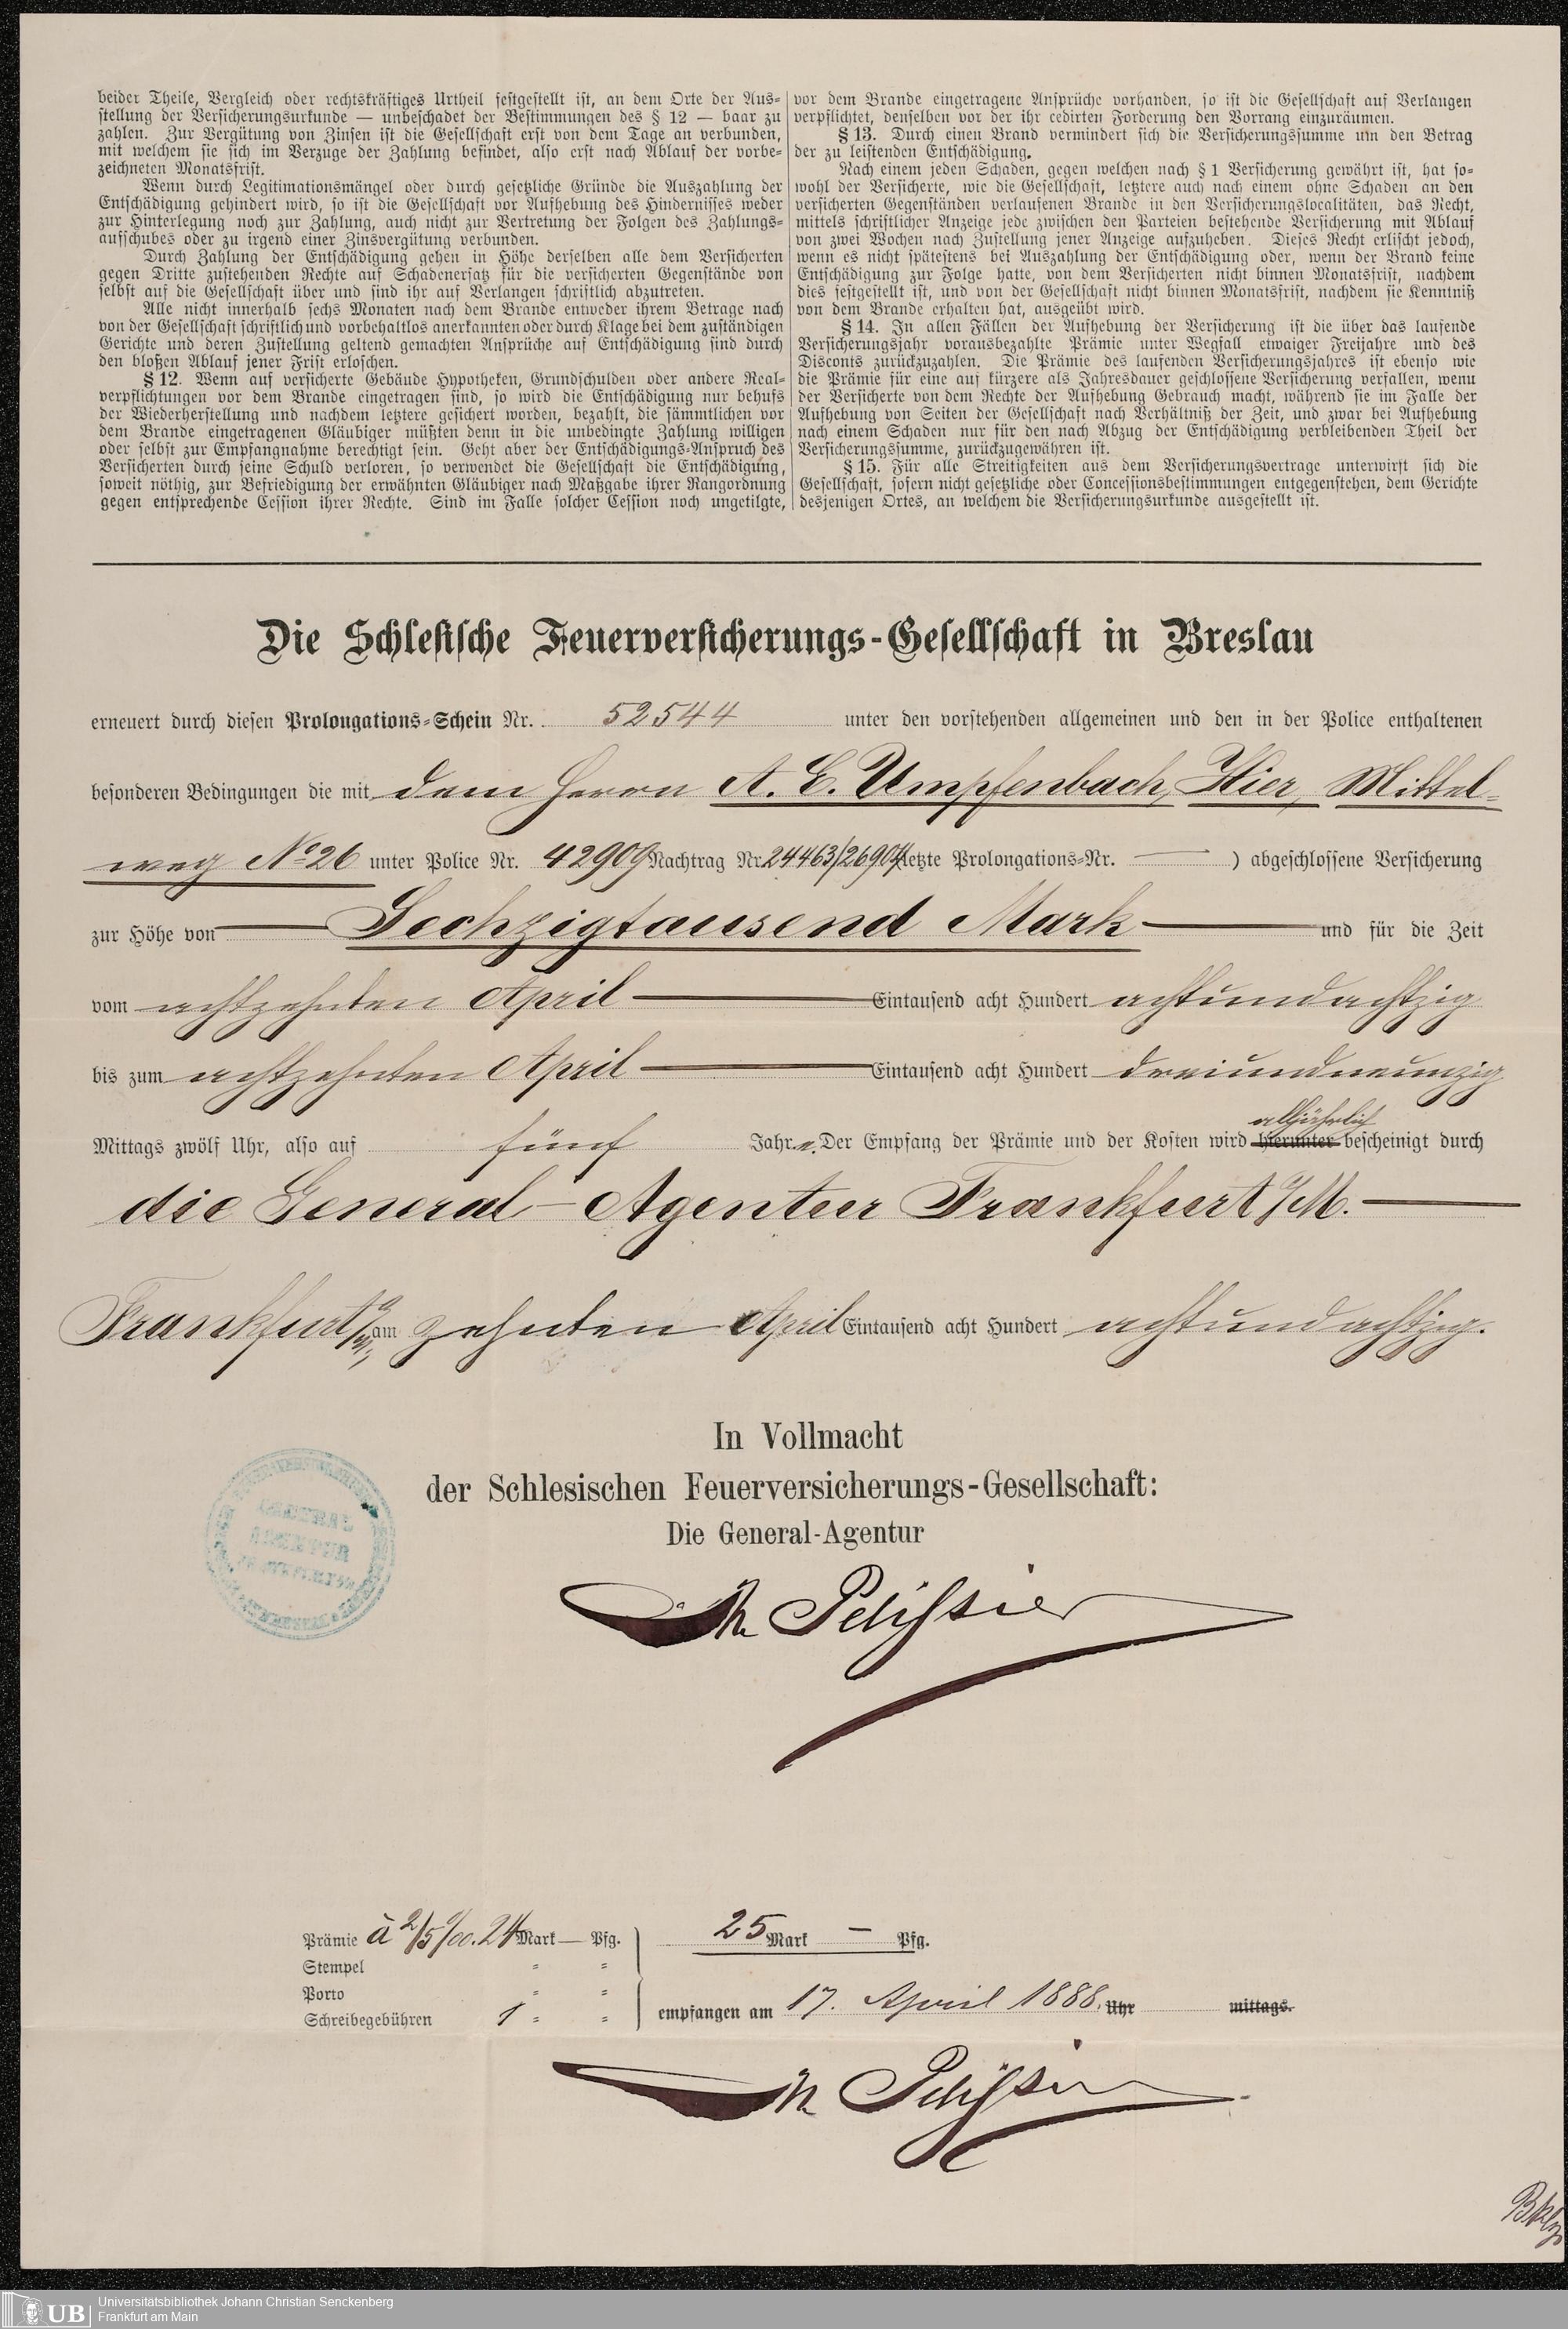 beider Theile, Vergleich oder rechtskräftiges Urtheil festgestellt ist, an dem Orte der Aus-
stellung der Versicherungsurkunde — unbeschadet der Bestimmungen des § 12 — baar zu
zahlen. Zur Vergütung von Zinsen ist die Gesellschaft erst von dem Tage an verbunden,
mit welchem sie sich im Verzuge der Zahlung befindet, also erst nach Ablauf der vorbe-
zeichneten Monatsfrist.
Wenn durch Legitimationsmängel oder durch gesetzliche Gründe die Auszahlung der
Entschädigung gehindert wird, so ist die Gesellschaft vor Aufhebung des Hindernisses weder
zur Hinterlegung noch zur Zahlung, auch nicht zur Vertretung der Folgen des Zahlungs-
aufschubes oder zu irgend einer Zinsvergütung verbunden.
Durch Zahlung der Entschädigung gehen in Höhe derselben alle dem Versicherten
gegen Dritte zustehenden Rechte auf Schadenersatz für die versicherten Gegenstände von
selbst auf die Gesellschaft über und sind ihr auf Verlangen schriftlich abzutreten.
Alle nicht innerhalb sechs Monaten nach dem Brande entweder ihrem Betrage nach
von der Gesellschaft schriftlich und vorbehaltlos anerkannten oder durch Klage bei dem zuständigen
Gerichte und deren Zustellung geltend gemachten Ansprüche auf Entschädigung sind durch
den bloßen Ablauf jener Frist erloschen.
§ 12. Wenn auf versicherte Gebäude Hypotheken, Grundschulden oder andere Real-
verpflichtungen vor dem Brande eingetragen sind, so wird die Entschädigung nur behufs
der Wiederherstellung und nachdem letztere gesichert worden, bezahlt, die sämmtlichen vor
dem Brande eingetragenen Gläubiger müßten denn in die unbedingte Zahlung willigen
oder selbst zur Empfangnahme berechtigt sein. Geht aber der Entschädigungs-Anspruch des
Versicherten durch seine Schuld verloren, so verwendet die Gesellschaft die Entschädigung,
soweit nöthig, zur Befriedigung der erwähnten Gläubiger nach Maßgabe ihrer Rangordnung
gegen entsprechende Cession ihrer Rechte. Sind im Falle solcher Cession noch ungetilgte,
vor dem Brande eingetragene Ansprüche vorhanden, so ist die Gesellschaft auf Verlangen
verpflichtet, denselben vor der ihr cedirten Forderung den Vorrang einzuräumen.
§ 13. Durch einen Brand vermindert sich die Versicherungssumme um den Betrag
der zu leistenden Entschädigung.
Nach einem jeden Schaden, gegen welchen nach § 1 Versicherung gewährt ist, hat so-
wohl der Versicherte, wie die Gesellschaft, letztere auch nach einem ohne Schaden an den
versicherten Gegenständen verlaufenen Brande in den Versicherungslocalitäten, das Recht,
mittels schriftlicher Anzeige jede zwischen den Parteien bestehende Versicherung mit Ablauf
von zwei Wochen nach Zustellung jener Anzeige aufzuheben. Dieses Recht erlischt jedoch,
wenn es nicht spätestens bei Auszahlung der Entschädigung oder, wenn der Brand keine
Entschädigung zur Folge hatte, von dem Versicherten nicht binnen Monatsfrist, nachdem
dies festgestellt ist, und von der Gesellschaft nicht binnen Monatsfrist, nachdem sie Kenntniß
von dem Brande erhalten hat, ausgeübt wird.
§ 14. In allen Fällen der Aufhebung der Versicherung ist die über das laufende
Versicherungsjahr vorausbezahlte Prämie unter Wegfall etwaiger Freijahre und des
Disconts zurückzuzahlen. Die Prämie des laufenden Versicherungsjahres ist ebenso wie
die Prämie für eine auf kürzere als Jahresdauer geschlossene Versicherung verfallen, wenn
der Versicherte von dem Rechte der Aufhebung Gebrauch macht, während sie im Falle der
Aufhebung von Seiten der Gesellschaft nach Verhältniß der Zeit, und zwar bei Aufhebung
nach einem Schaden nur für den nach Abzug der Entschädigung verbleibenden Theil der
Versicherungssumme, zurückzugewähren ist.
§ 15. Für alle Streitigkeiten aus dem Versicherungsvertrage unterwirft sich die
Gesellschaft, sofern nicht gesetzliche oder Concessionsbestimmungen entgegenstehen, dem Gerichte
desjenigen Ortes, an welchem die Versicherungsurkunde ausgestellt ist.
Die Schlesische Feuerversicherungs-Gesellschaft in Breslau
erneuert durch diesen Prolongations-Schein Nr. 52544 unter den vorstehenden allgemeinen und den in der Police enthaltenen
besonderen Bedingungen die mit dem Herrn A. E. Umpfenbach, Hier, Mittel-
weg No 26 unter Police Nr. 42909 Nachtrag Nr. 24463/26904 letzte Prolongations-Nr. — ) abgeschlossene Versicherung
zur Höhe von — Sechzigtausend Mark — und für die Zeit
vom achtzehnten April — Eintausend acht Hundert achtundachtzig
bis zum achtzehnten April — Eintausend acht Hundert dreiundneunzig
alljährlich
Mittags zwölf Uhr, also auf fünf Jahre. Der Empfang der Prämie und der Kosten wird hierunter bescheinigt durch
die General-Agentur Frankfurt a/M. —
Frankfurt a/M, am zehnten April Eintausend acht Hundert achtundachtzig.
In Vollmacht
der Schlesischen Feuerversicherungs-Gesellschaft:
Die General-Agentur
GENERAL
AGENTUR
Th Pelissier
Prämie à 2/5 0/00. 24 Mark — Pfg.
Stempel " "
Porto " "
Schreibegebühren 1 " "
25 Mark — Pfg.
empfangen am 17. April 1888. Uhr mittags.
Th Pelissier
UB
Universitätsbibliothek Johann Christian Senckenberg
Frankfurt am Main